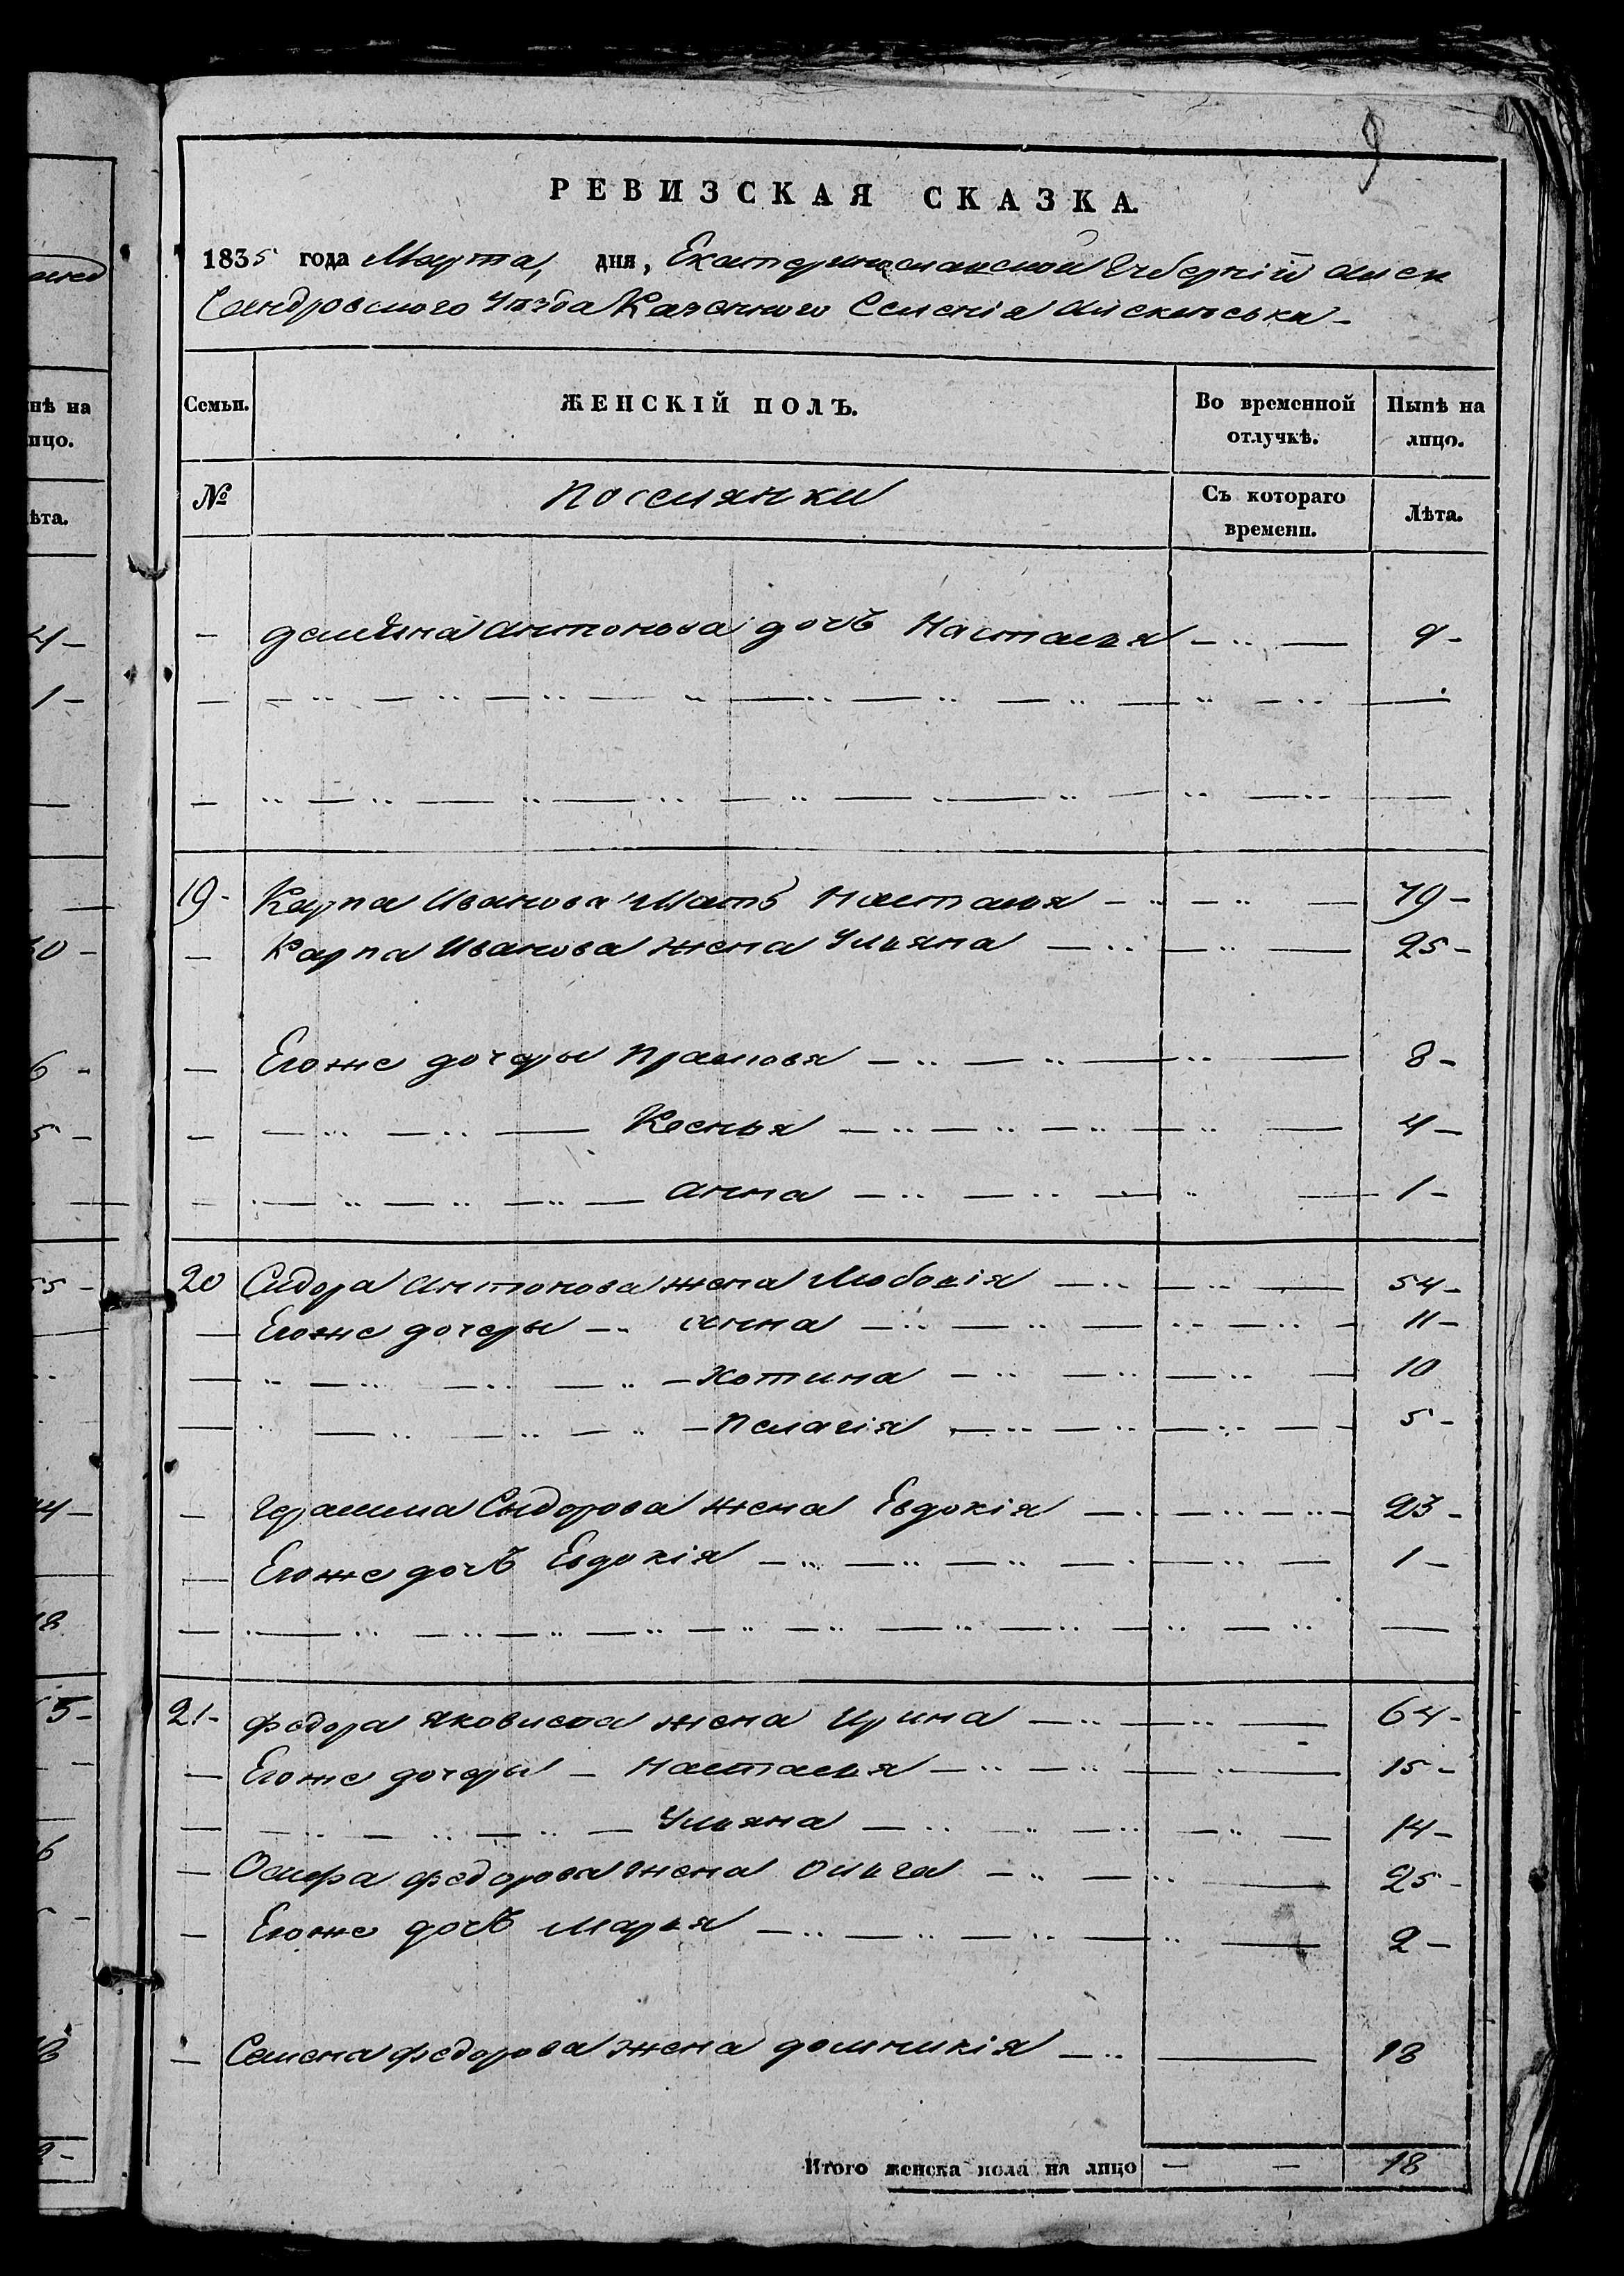 9
РЕВИЗСКАЯ СКАЗКА.
1835 года Марта, дня, Екатеринославской Губерніи Алек
сандровского Уезда Казенного Селенія
Семьи. ЖЕНСКІЙ ПОЛЪ. Во временной отлучкѣ. Нынѣ на лицо.
№ Поселянки Съ котораго времени. Лѣта.
— Антонова дочь Настасья — 9 -
19 - Карпа Иванова Мать Настасья — 79 -
— Карпа Иванова жена Ульяна — 25 -
— Егоже дочеры Прасковя — 8 -
— Ксенья — 4 -
— Анна — 1 -
20 Сидора Антонова жена — 54 -
— Егоже дочеры — Анна — 11 -
— Хотина — 10
— Пелагія — 5 -
— Герасима Сидорова жена Евдокія — 23 -
— Егоже дочь Евдокія — 1 -
21 - Федора Яковлева жена Ирина — 64 -
— Егоже дочеры — Настасья — 15 -
— Ульяна — 14 -
— Осифа Федорова жена Ольга — 25 -
— Егоже дочь Марья — 2 -
— Семена Федорова жена Домникія — 18
Итого женска пола на лицо — — 18